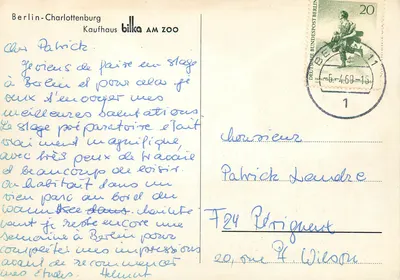 Berlin-Charlottenburg
Kaufhaus bilka AM ZOO
cher Patrick.
Je viens de faire un stage
à Berlin et pour cela je
veux t'envoyer mes
meilleures salutations.
Le stage préparatoire était
vraiment magnifique
avec très peux de travail
et beaucoup de loisir.
On habitait dans un
vieux parc au bord du
Wannsee dans. Mainte
nant je reste encore une
semaine à Berlin pour
compléter mes impressions
avant de recommencer
mes études. Helmut
20
DEUTSCHE BUNDESPOST BERLIN
BERLIN 11
-5.-4.69-15
1
Monsieur
Patrick
F24 Périgueux
rue P. Wilson